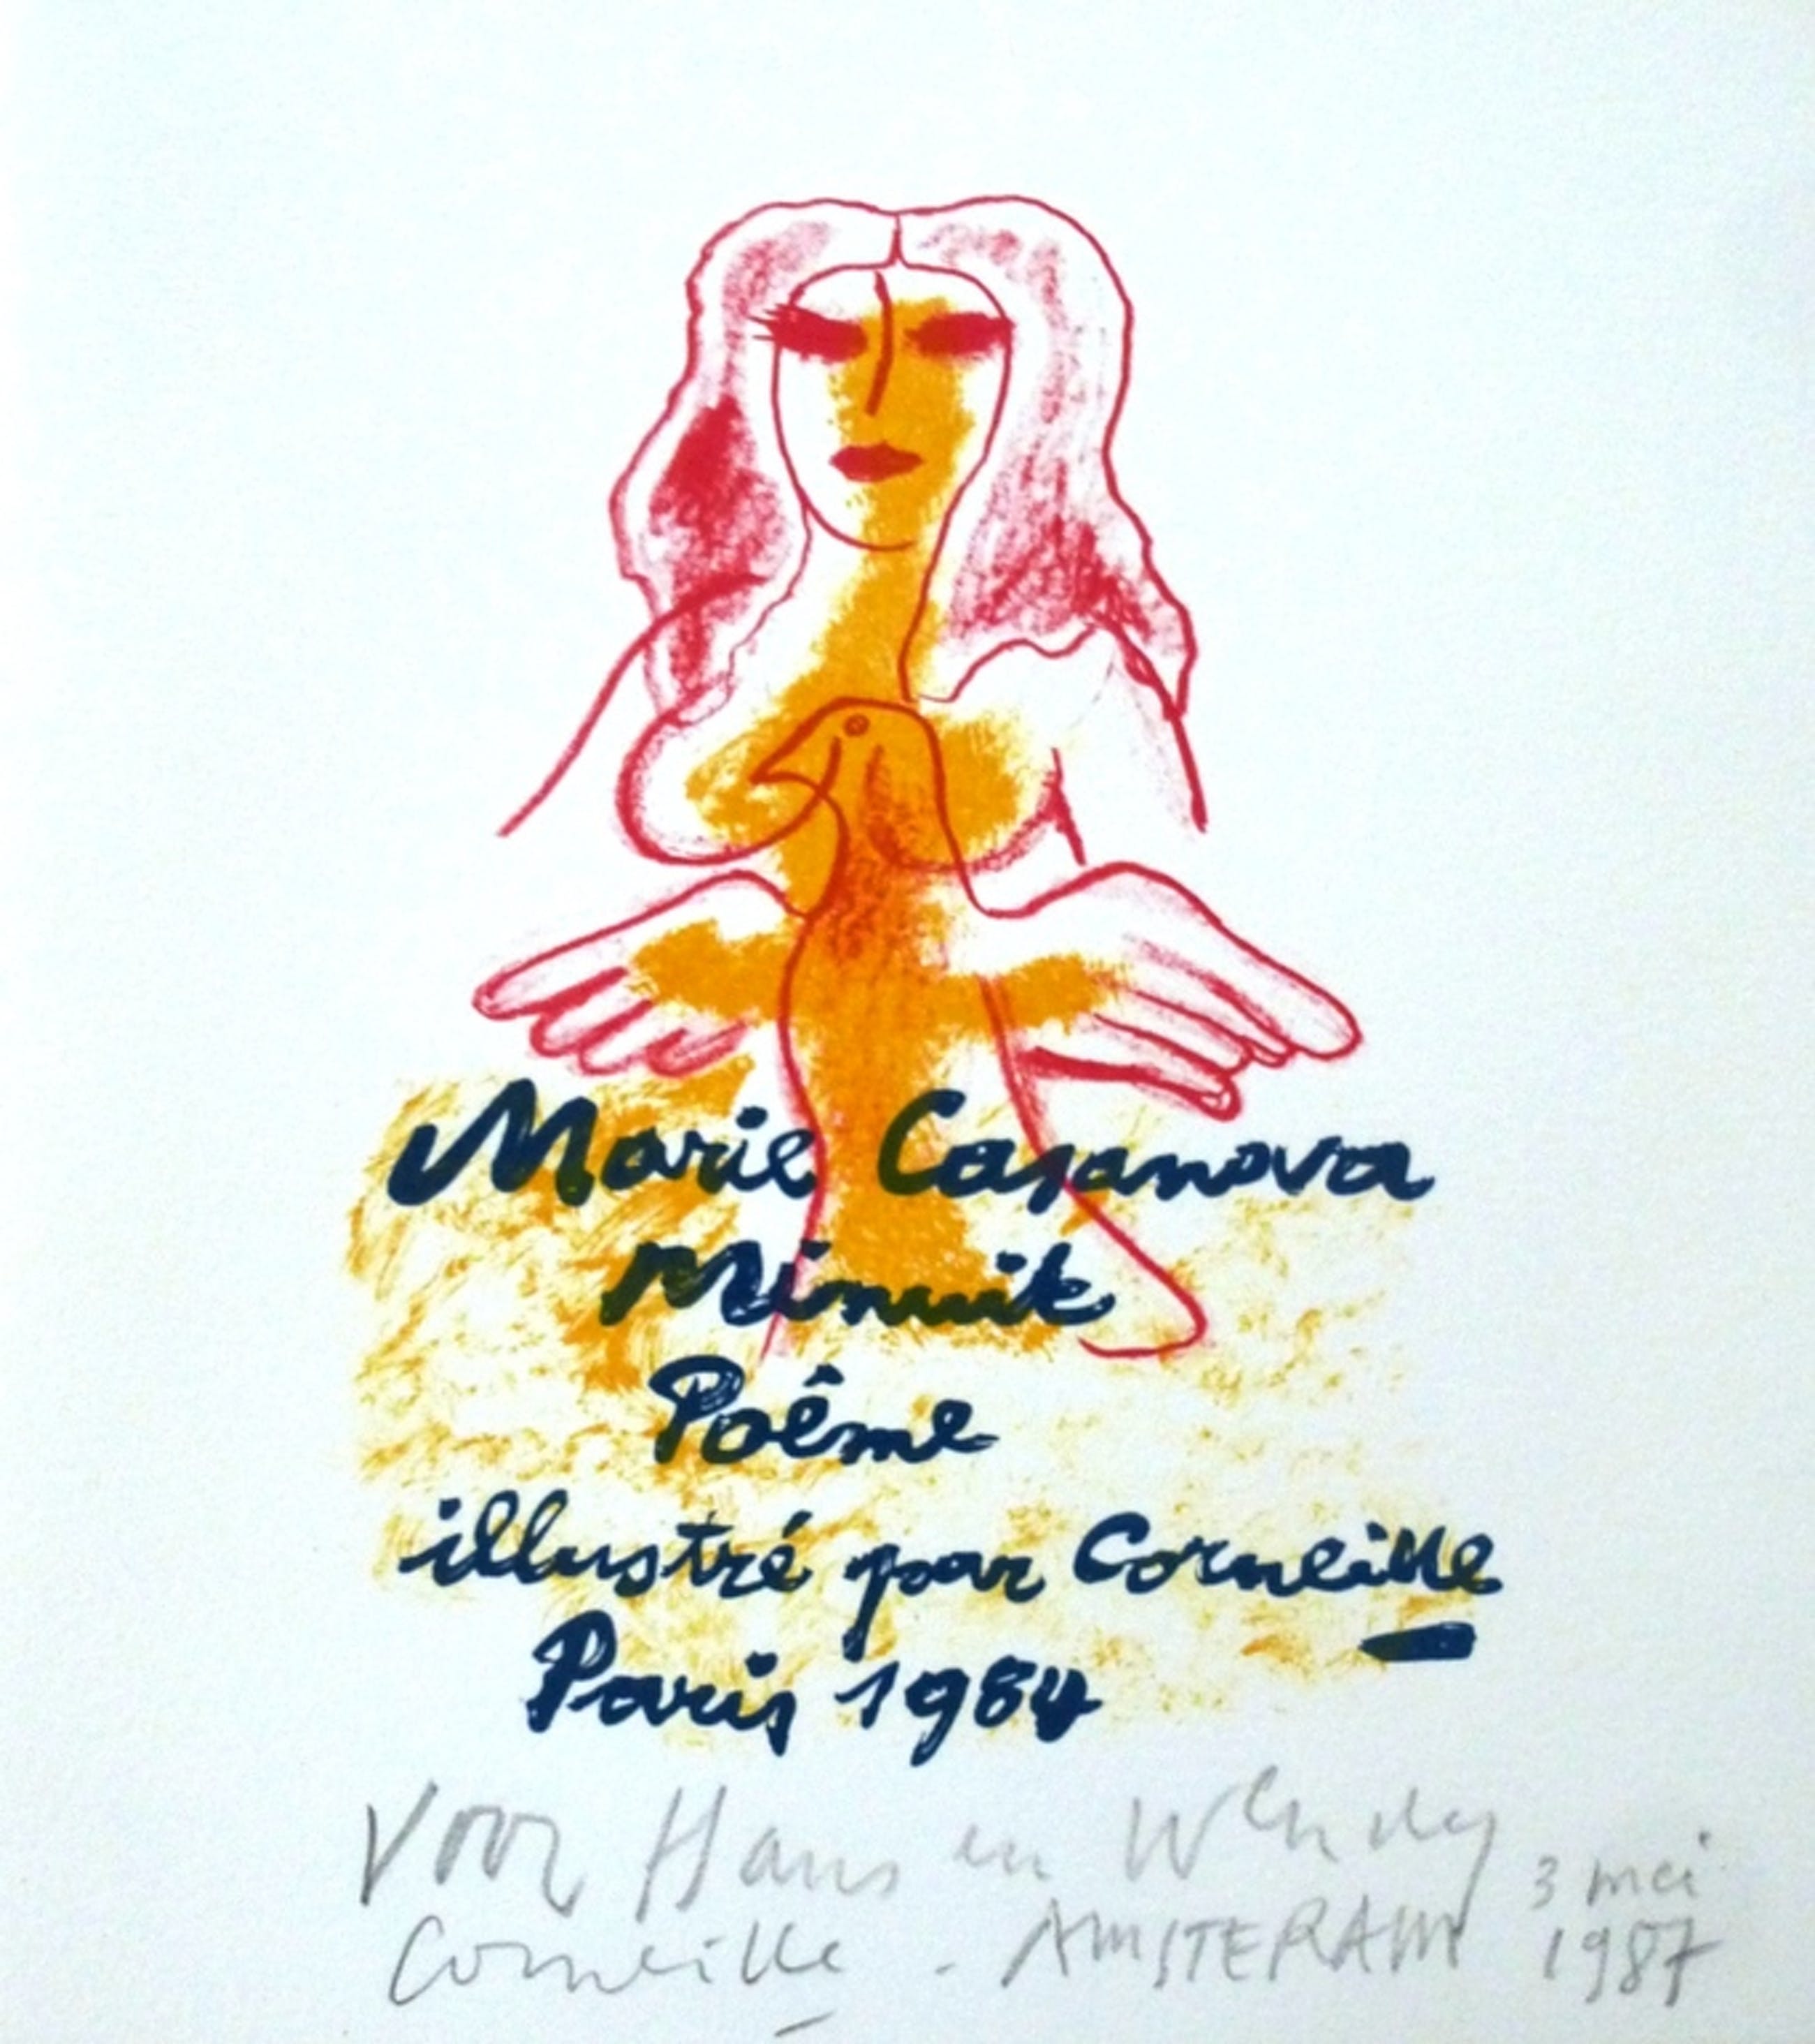 Marie Casanova
Minuit
Poême
illustré par Corneille
Paris 1984
Voor Hans en Wendy
3 mei
Corneille - AMSTERAM 1987